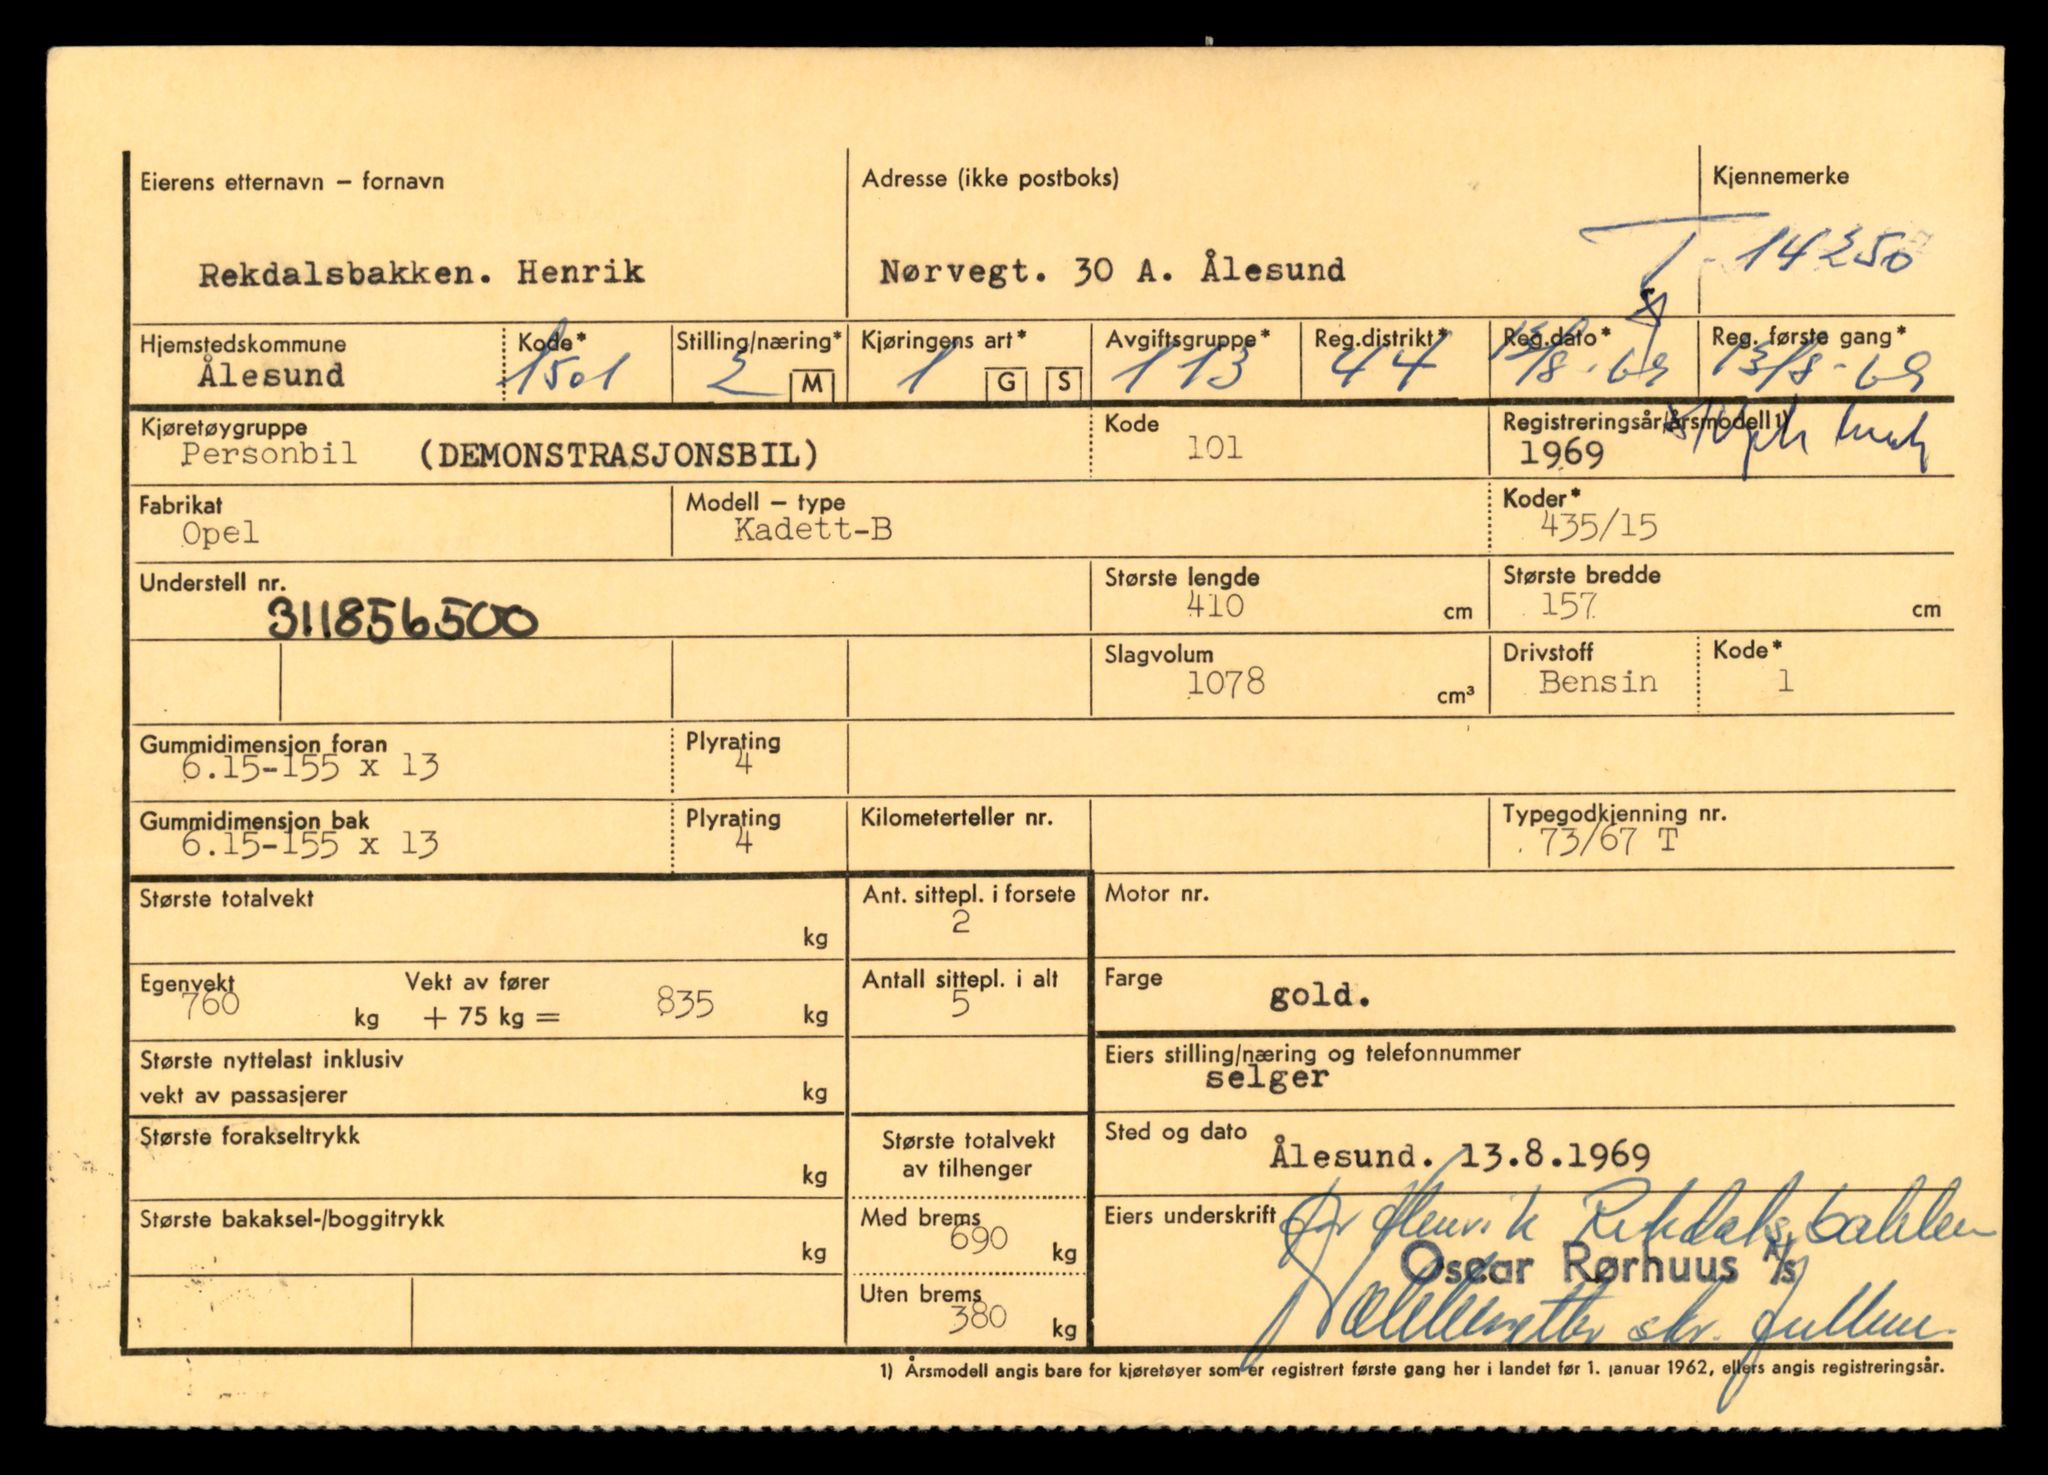 Eierens etternavn – fornavn
Adresse (ikke postboks)
Kjennemerke
Rekdalsbakken. Henrik
Nørvegt. 30 A. Ålesund
T - 14250
Hjemstedskommune
Kode*
Stilling/næring*
Kjøringens art*
Avgiftsgruppe*
Reg.distrikt*
Reg.dato*
Reg. første gang*
Ålesund
1501
2
M
1
G
S
113
44
13/8-69
13/8-69
Kjøretøygruppe
Kode
Registreringsår/årsmodell 1)
Personbil (DEMONSTRASJONSBIL)
101
1969
Fabrikat
Modell – type
Koder*
Opel
Kadett-B
435/15
Understell nr.
Største lengde
Største bredde
311856500
410 cm
157 cm
Slagvolum
Drivstoff
Kode*
1078 cm³
Bensin
1
Gummidimensjon foran
Plyrating
6.15-155 x 13
4
Gummidimensjon bak
Plyrating
Kilometerteller nr.
Typegodkjenning nr.
6.15-155 x 13
4
73/67 T
Største totalvekt
kg
Ant. sittepl. i forsete
2
Motor nr.
Egenvekt
Vekt av fører
760 kg + 75 kg = 835 kg
Antall sittepl. i alt
5
Farge
gold.
Største nyttelast inklusiv
vekt av passasjerer
kg
Eiers stilling/næring og telefonnummer
selger
Største forakseltrykk
kg
Største totalvekt
av tilhenger
Sted og dato
Ålesund. 13.8.1969
Største bakaksel-/boggitrykk
kg
Med brems
690 kg
Eiers underskrift
for Henrik Rekdalsbakken
Oscar Rørhuus A/S
Uten brems
380 kg
1) Årsmodell angis bare for kjøretøyer som er registrert første gang her i landet før 1. januar 1962, ellers angis registreringsår.